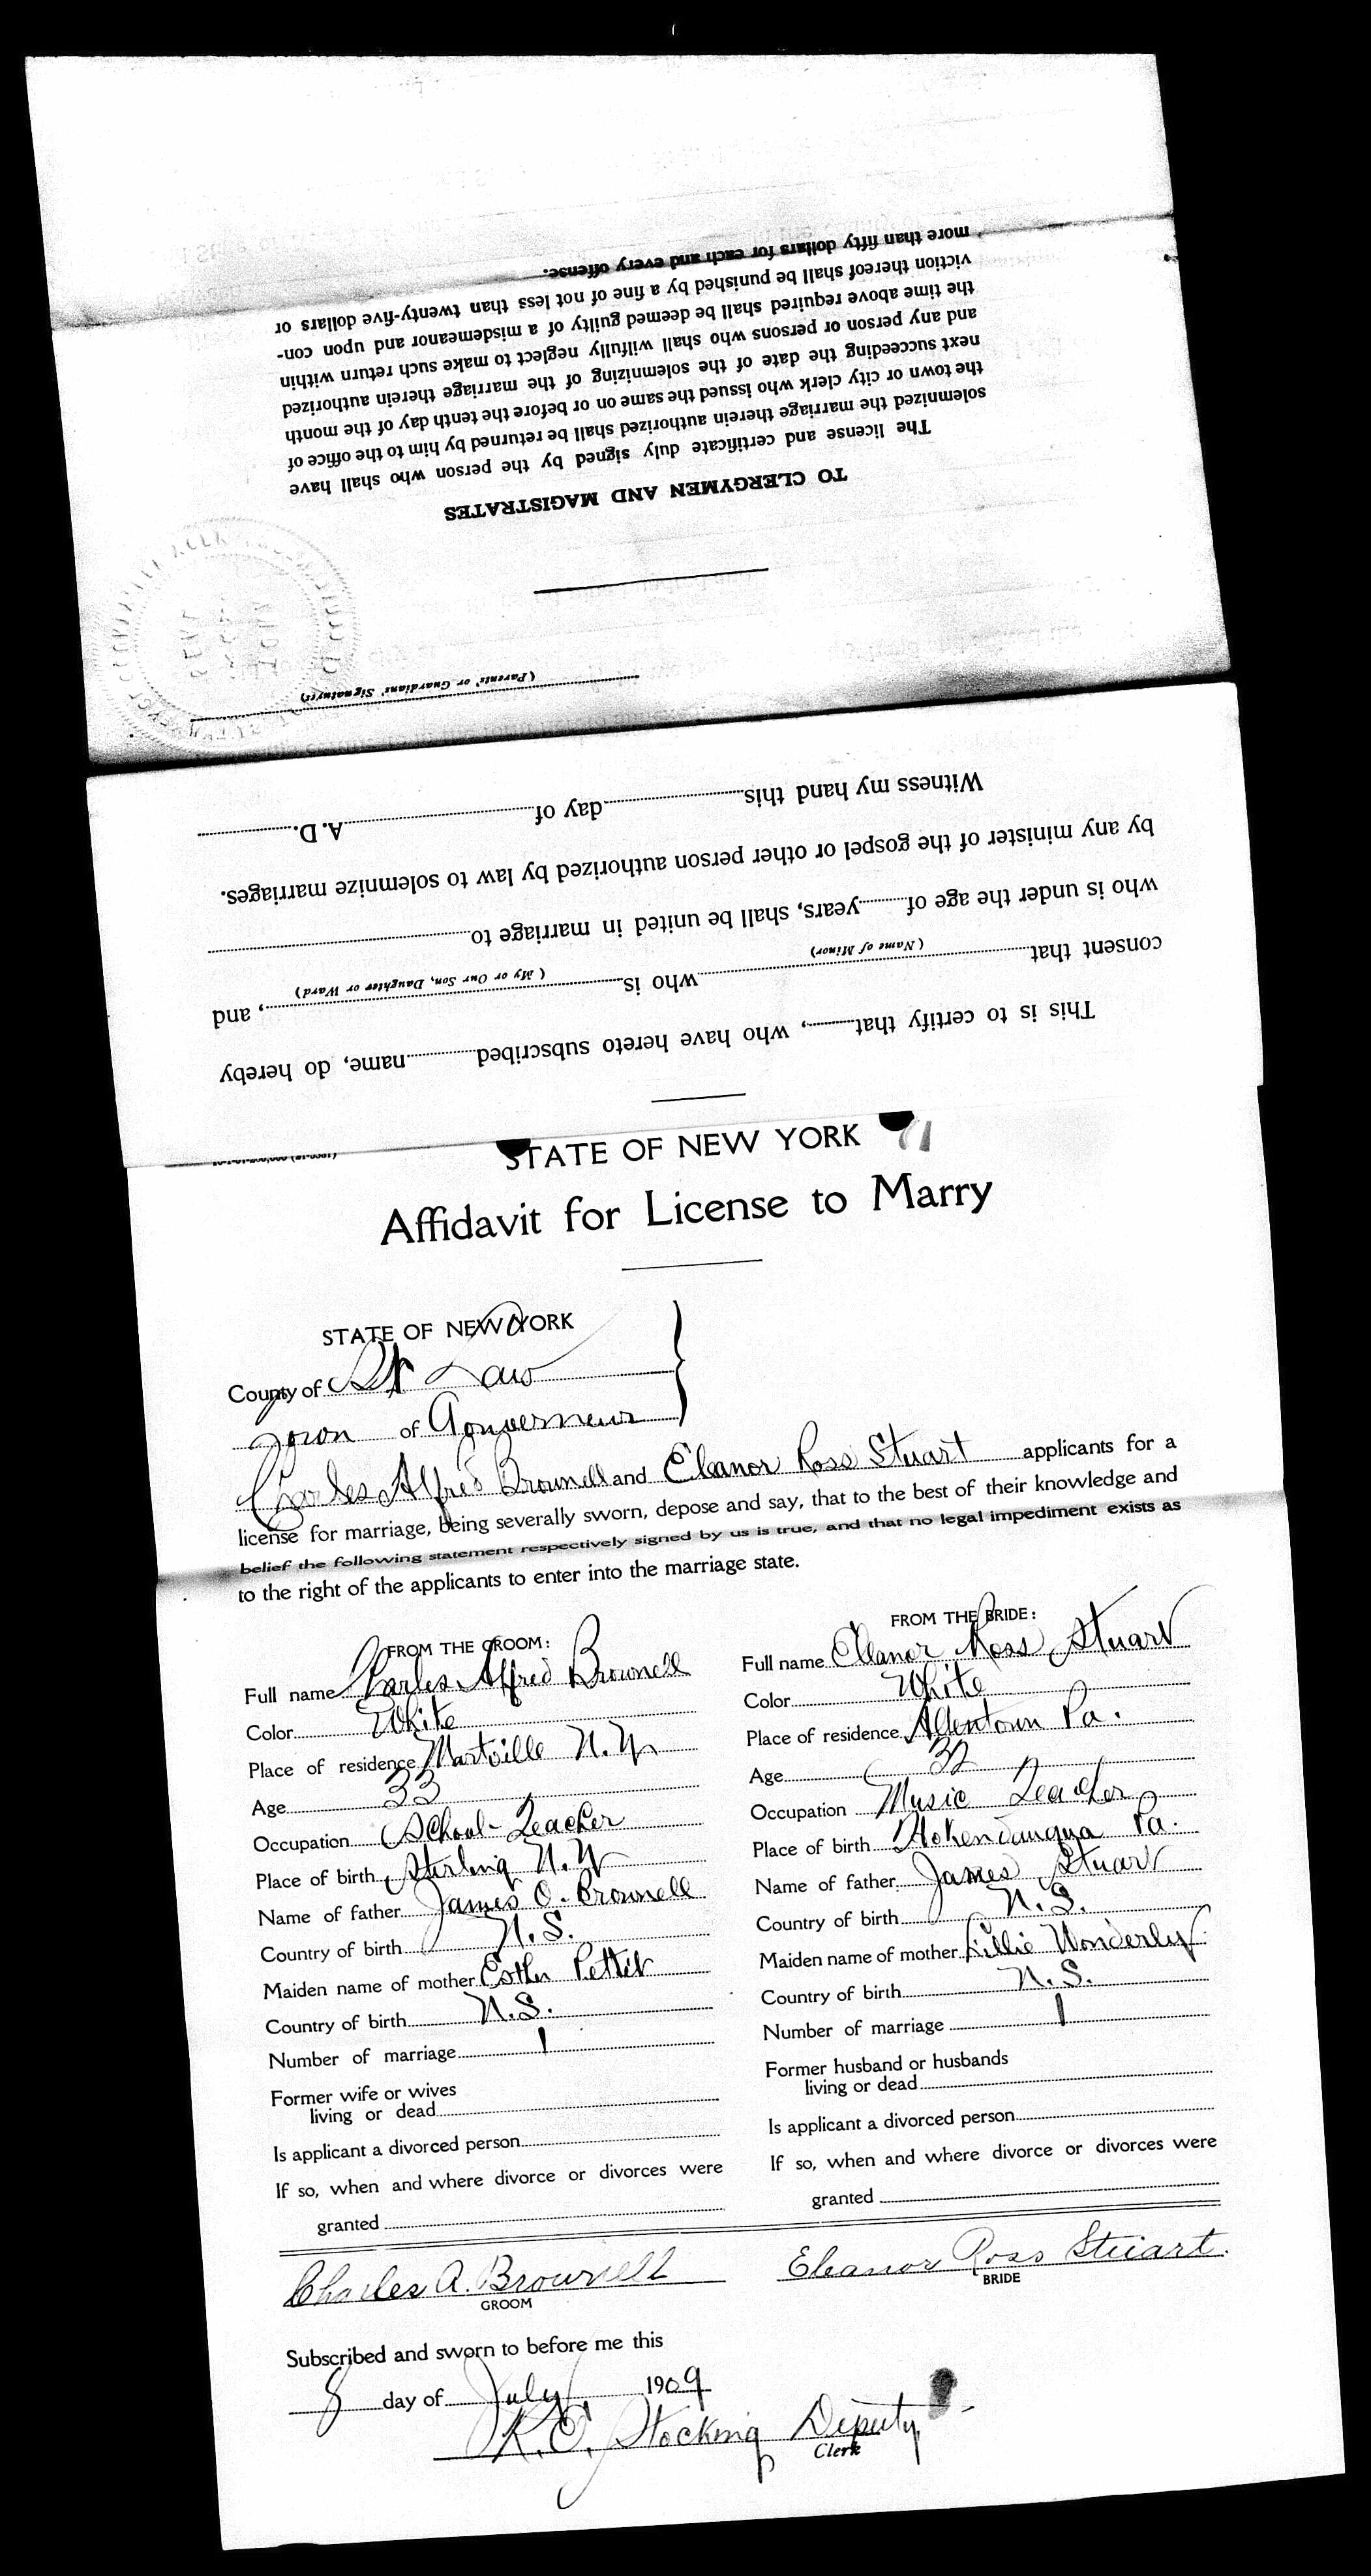 more than fifty dollars for each and every offense.
viction thereof shall be punished by a fine of not less than twenty-five dollars or
the time above required shall be deemed guilty of a misdemeanor and upon con-
and any person or persons who shall wilfully neglect to make such return within
next succeeding the date of the solemnizing of the marriage therein authorized
the town or city clerk who issued the same on or before the tenth day of the month
solemnized the marriage therein authorized shall be returned by him to the office of
The license and certificate duly signed by the person who shall have
TO CLERGYMEN AND MAGISTRATES
(Parents' or Guardians' Signatures)
Witness my hand this day of A. D.
by any minister of the gospel or other person authorized by law to solemnize marriages.
who is under the age of years, shall be united in marriage to
(Name of Minor) (My or Our Son, Daughter or Ward)
consent that who is , and
This is to certify that , who have hereto subscribed name, do hereby
STATE OF NEW YORK
Affidavit for License to Marry
STATE OF NEW YORK
County of St Law
Town of Gouverneur
Charles Alfred Brownell and Eleanor Ross Stuart applicants for a
license for marriage, being severally sworn, depose and say, that to the best of their knowledge and
belief the following statement respectively signed by us is true, and that no legal impediment exists as
to the right of the applicants to enter into the marriage state.
FROM THE GROOM:
Full name Charles Alfred Brownell
Color White
Place of residence Martville N.Y.
Age 33
Occupation School-Teacher
Place of birth Sterling N.Y.
Name of father James O. Brownell
Country of birth U.S.
Maiden name of mother Esther Pettit
Country of birth U.S.
Number of marriage 1
Former wife or wives
living or dead
Is applicant a divorced person
If so, when and where divorce or divorces were
granted
FROM THE BRIDE:
Full name Eleanor Ross Stuart
Color White
Place of residence Allentown Pa.
Age 32
Occupation Music Teacher
Place of birth Hokendauqua Pa.
Name of father James Stuart
Country of birth U.S.
Maiden name of mother Lillie Wonderly
Country of birth U.S.
Number of marriage 1
Former husband or husbands
living or dead
Is applicant a divorced person
If so, when and where divorce or divorces were
granted
Charles A. Brownell
GROOM
Eleanor Ross Stuart.
BRIDE
Subscribed and sworn to before me this
8 day of July 1909
K. C. Stocking Deputy
Clerk